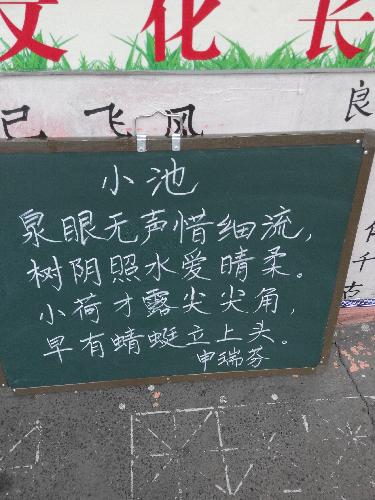 文化长
己飞风
良
小池
泉眼无声惜细流,
树阴照水爱晴柔。
小荷才露尖尖角,
早有蜻蜓立上头。
申瑞芬
千
古